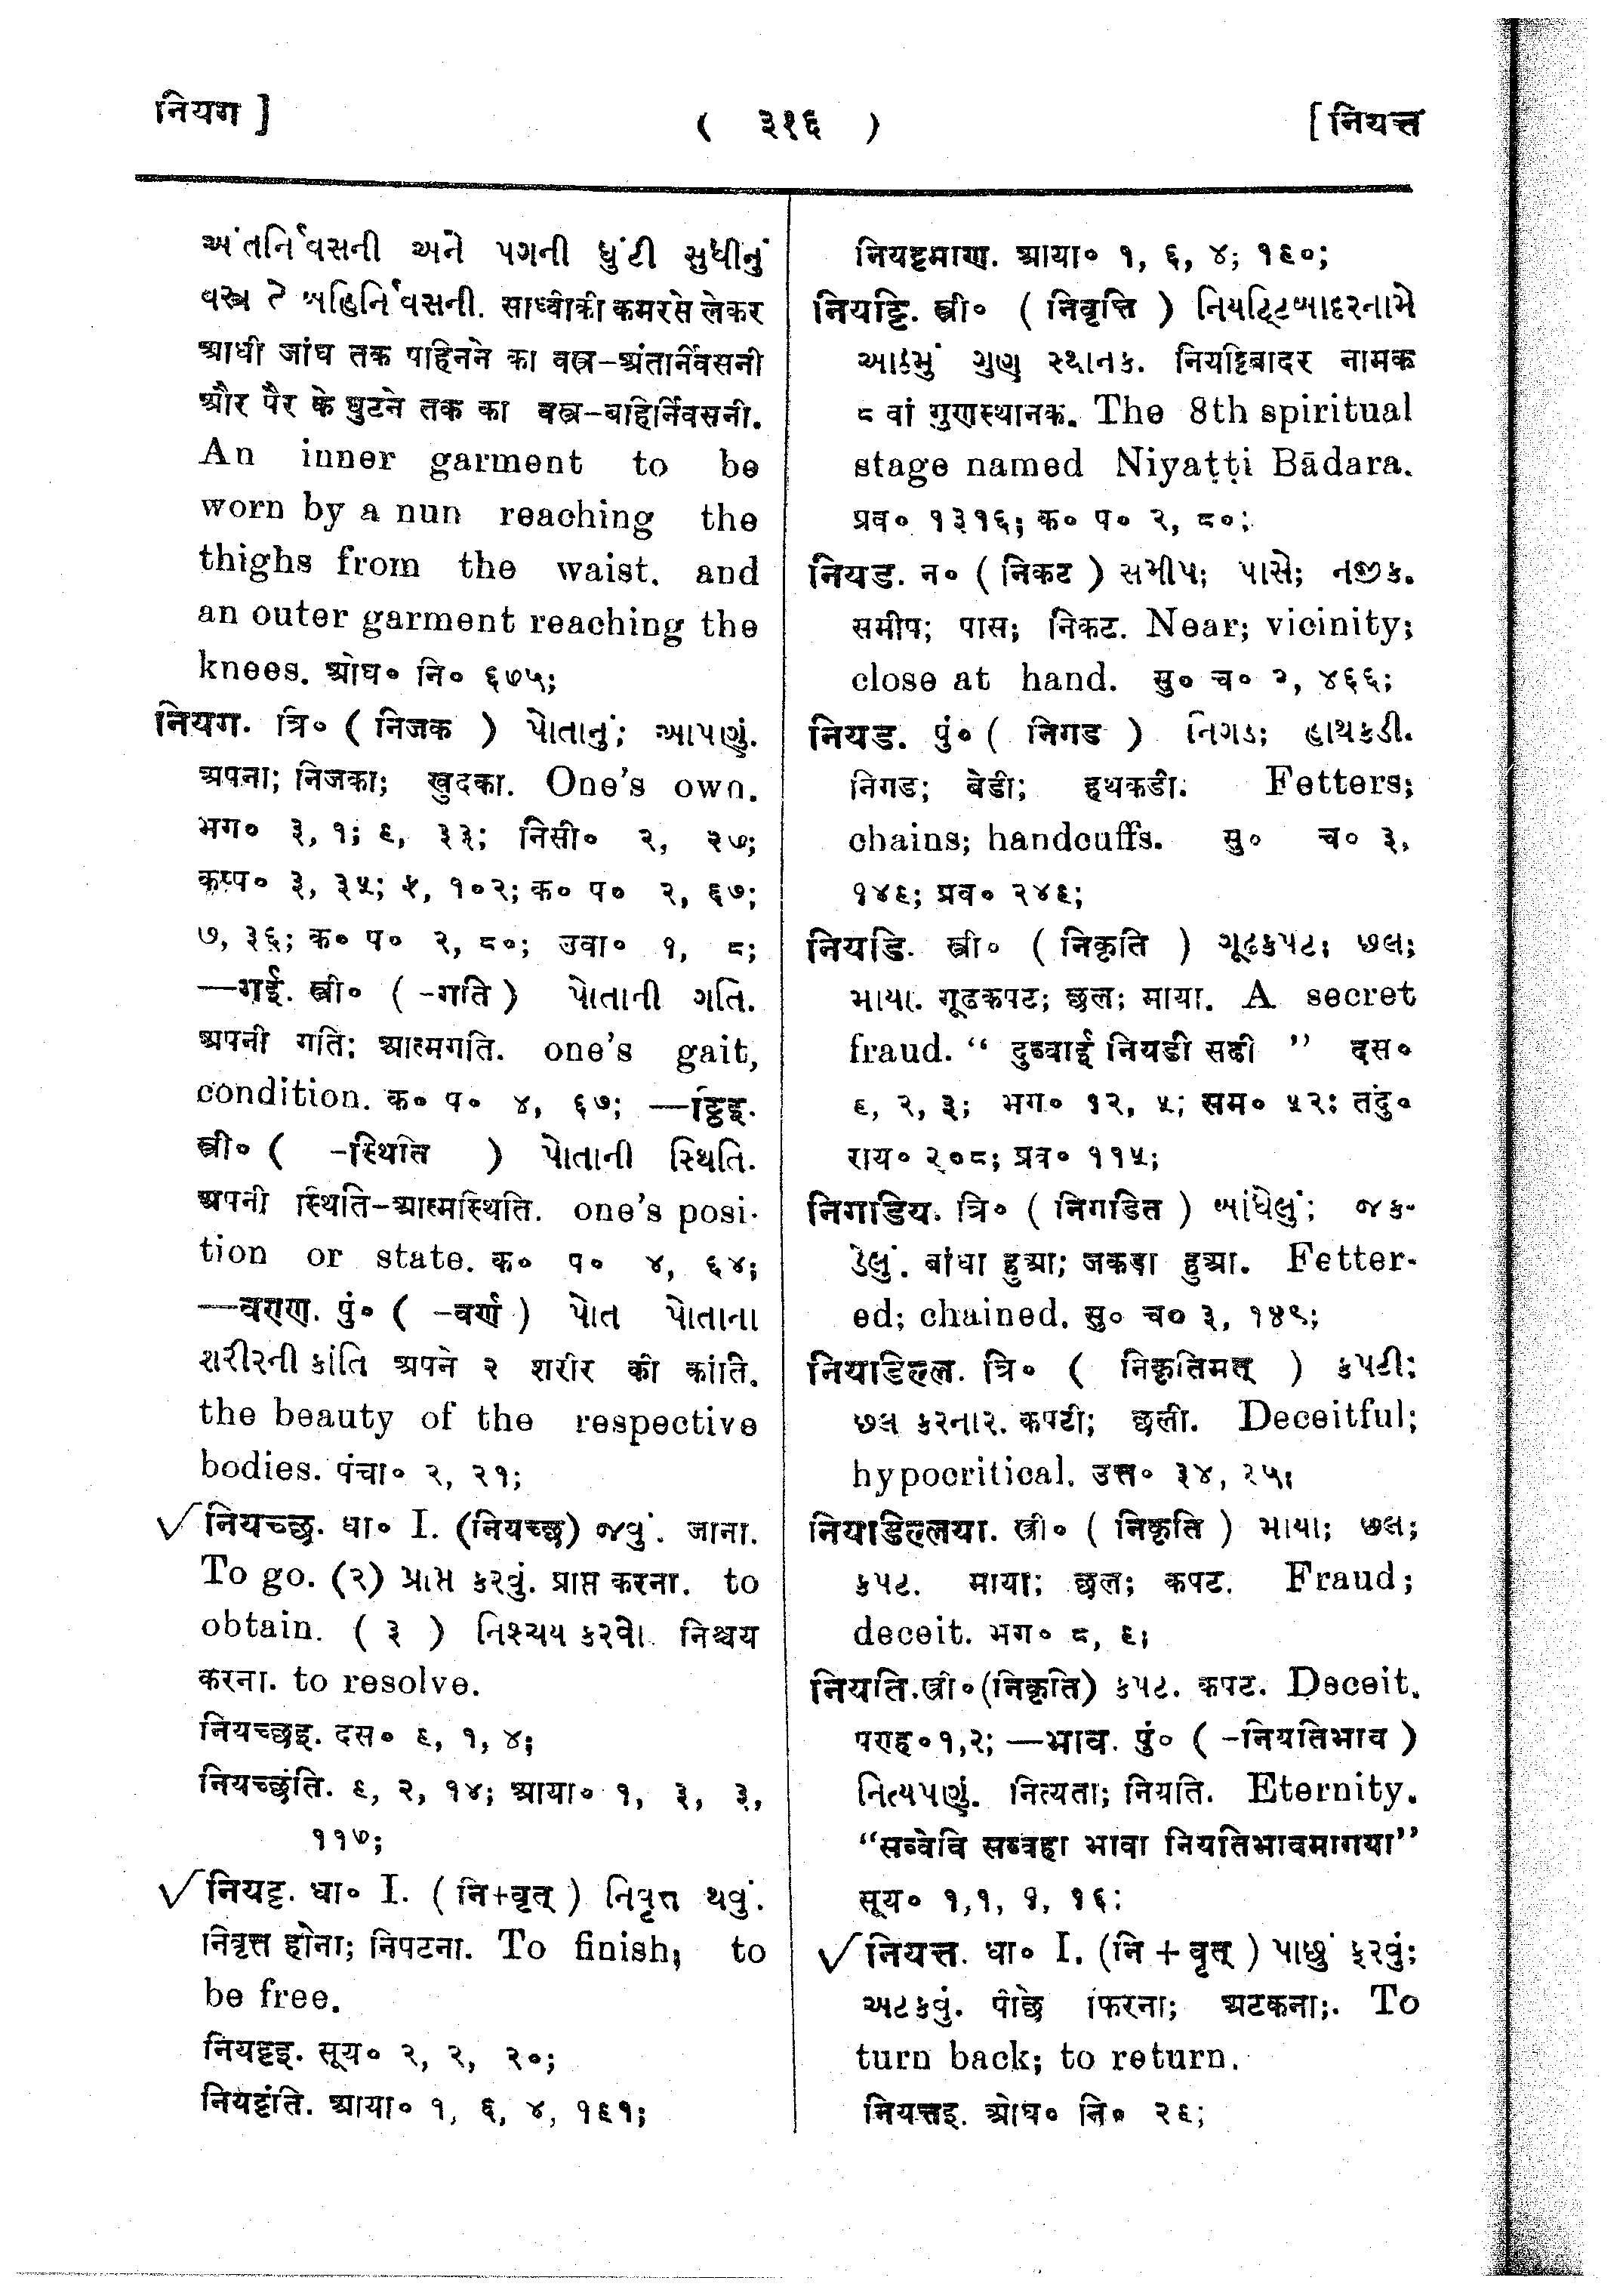 नियग ]
( ३१६ )
[ नियत्त
અંતર્નિવસની અને પગની ઘુંટી સુધીનું
વસ્ત્ર તે બહિર્નિવસની. साध्वीकी कमरसे लेकर
आधी जांघ तक पहिनने का वस्त्र–अंतर्निवसनी
और पैर के घुटने तक का वस्त्र–बहिर्निवसनी.
An inner garment to be
worn by a nun reaching the
thighs from the waist. and
an outer garment reaching the
knees. ओघ० नि० ६७५;
नियग. त्रि० ( निजक ) પોતાનું; આપણું.
अपना; निजका; खुदका. One's own.
भग० ३, १; ६, ३३; निसी० २, २७;
कप्प० ३, ३५; ५, १०२; क० प० २, ६७;
७, ३६; क० प० २, ८०; उवा० १, ८;
—गई. स्त्री० ( -गति ) પોતાની ગતિ.
अपनी गति; आत्मगति. one's gait,
condition. क० प० ४, ६७; —ट्ठिइ.
स्त्री० ( -स्थिति ) પોતાની સ્થિતિ.
अपनी स्थिति–आत्मस्थिति. one's posi-
tion or state. क० प० ४, ६४;
—वराण. पुं० ( -वर्ण ) પોત પોતાના
શરીરની કાંતિ अपने २ शरीर की कांति.
the beauty of the respective
bodies. पंचा० २, २१;
√ नियच्छ. धा० I. (नियच्छ) જવું. जाना.
To go. (२) પ્રાપ્ત કરવું. प्राप्त करना. to
obtain. ( ३ ) નિશ્ચય કરવો. निश्चय
करना. to resolve.
नियच्छइ. दस० ६, १, ४;
नियच्छंति. ६, २, १४; आया० १, ३, ३,
११७;
√ नियट्ट. धा० I. ( नि+वृत् ) નિવૃત્ત થવું.
निवृत्त होना; निपटना. To finish; to
be free.
नियट्टइ. सूय० २, २, २०;
नियट्टंति. आया० १, ६, ४, १६१;
नियट्टमाण. आया० १, ६, ४; १६०;
नियट्टि. स्त्री० ( निवृत्ति ) નિયટ્ટિબાદરનામે
આઠમું ગુણ સ્થાનક. नियट्टिबादर नामक
८ वां गुणस्थानक. The 8th spiritual
stage named Niyaṭṭi Bādara.
प्रव० १३१६; क० प० २, ८०;
नियड. न० ( निकट ) સમીપ; પાસે; નજીક.
समीप; पास; निकट. Near; vicinity;
close at hand. सु० च० २, ४६६;
नियड. पुं० ( निगड ) નિગડ; હાથકડી.
निगड; बेडी; हथकडी. Fetters;
chains; handcuffs. सु० च० ३,
१४६; प्रव० २४६;
नियडि. स्त्री० ( निकृति ) ગૂઢકપટ; છલ;
માયા. गूढकपट; छल; माया. A secret
fraud. “ दुव्वाई नियडी सढी ” दस०
६, २, ३; भग० १२, ५; सम० ५२; तंदु०
राय० २०८; प्रव० ११५;
निगडिय. त्रि० ( निगडित ) બાંધેલું; જક-
ડેલું. बांधा हुआ; जकडा हुआ. Fetter-
ed; chained. सु० च० ३, १४९;
नियडिल्ल. त्रि० ( निकृतिमत् ) કપટી;
છલ કરનાર. कपटी; छली. Deceitful;
hypocritical. उत्त० ३४, २५;
नियडिल्लया. स्त्री० ( निकृति ) માયા; છલ;
કપટ. माया; छल; कपट. Fraud;
deceit. भग० ८, ६;
नियति. स्त्री० (निकृति) કપટ. कपट. Deceit.
पराह० १,२; —भाव. पुं० ( -नियतिभाव )
નિત્યપણું. नित्यता; नियति. Eternity.
“सव्वेवि सव्वहा भावा नियतिभावमागया”
सूय० १,१, १, १६;
√ नियत्त. धा० I. (नि + वृत् ) પાછું ફરવું;
અટકવું. पीछे फिरना; अटकना;. To
turn back; to return.
नियत्तइ. ओघ० नि० २६;